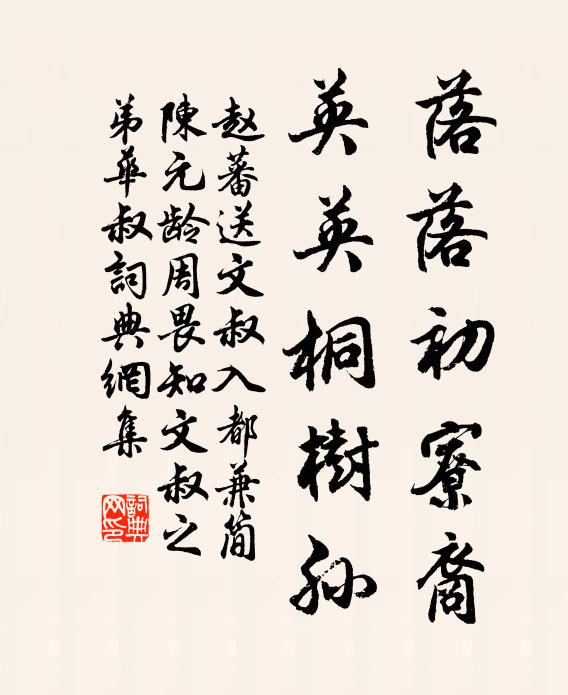 落落初寮裔
英英桐樹孙
赵蕃送文叔入都兼简
陳元龄周畏知文叔之
弟華叔詞典網集
詞典网印